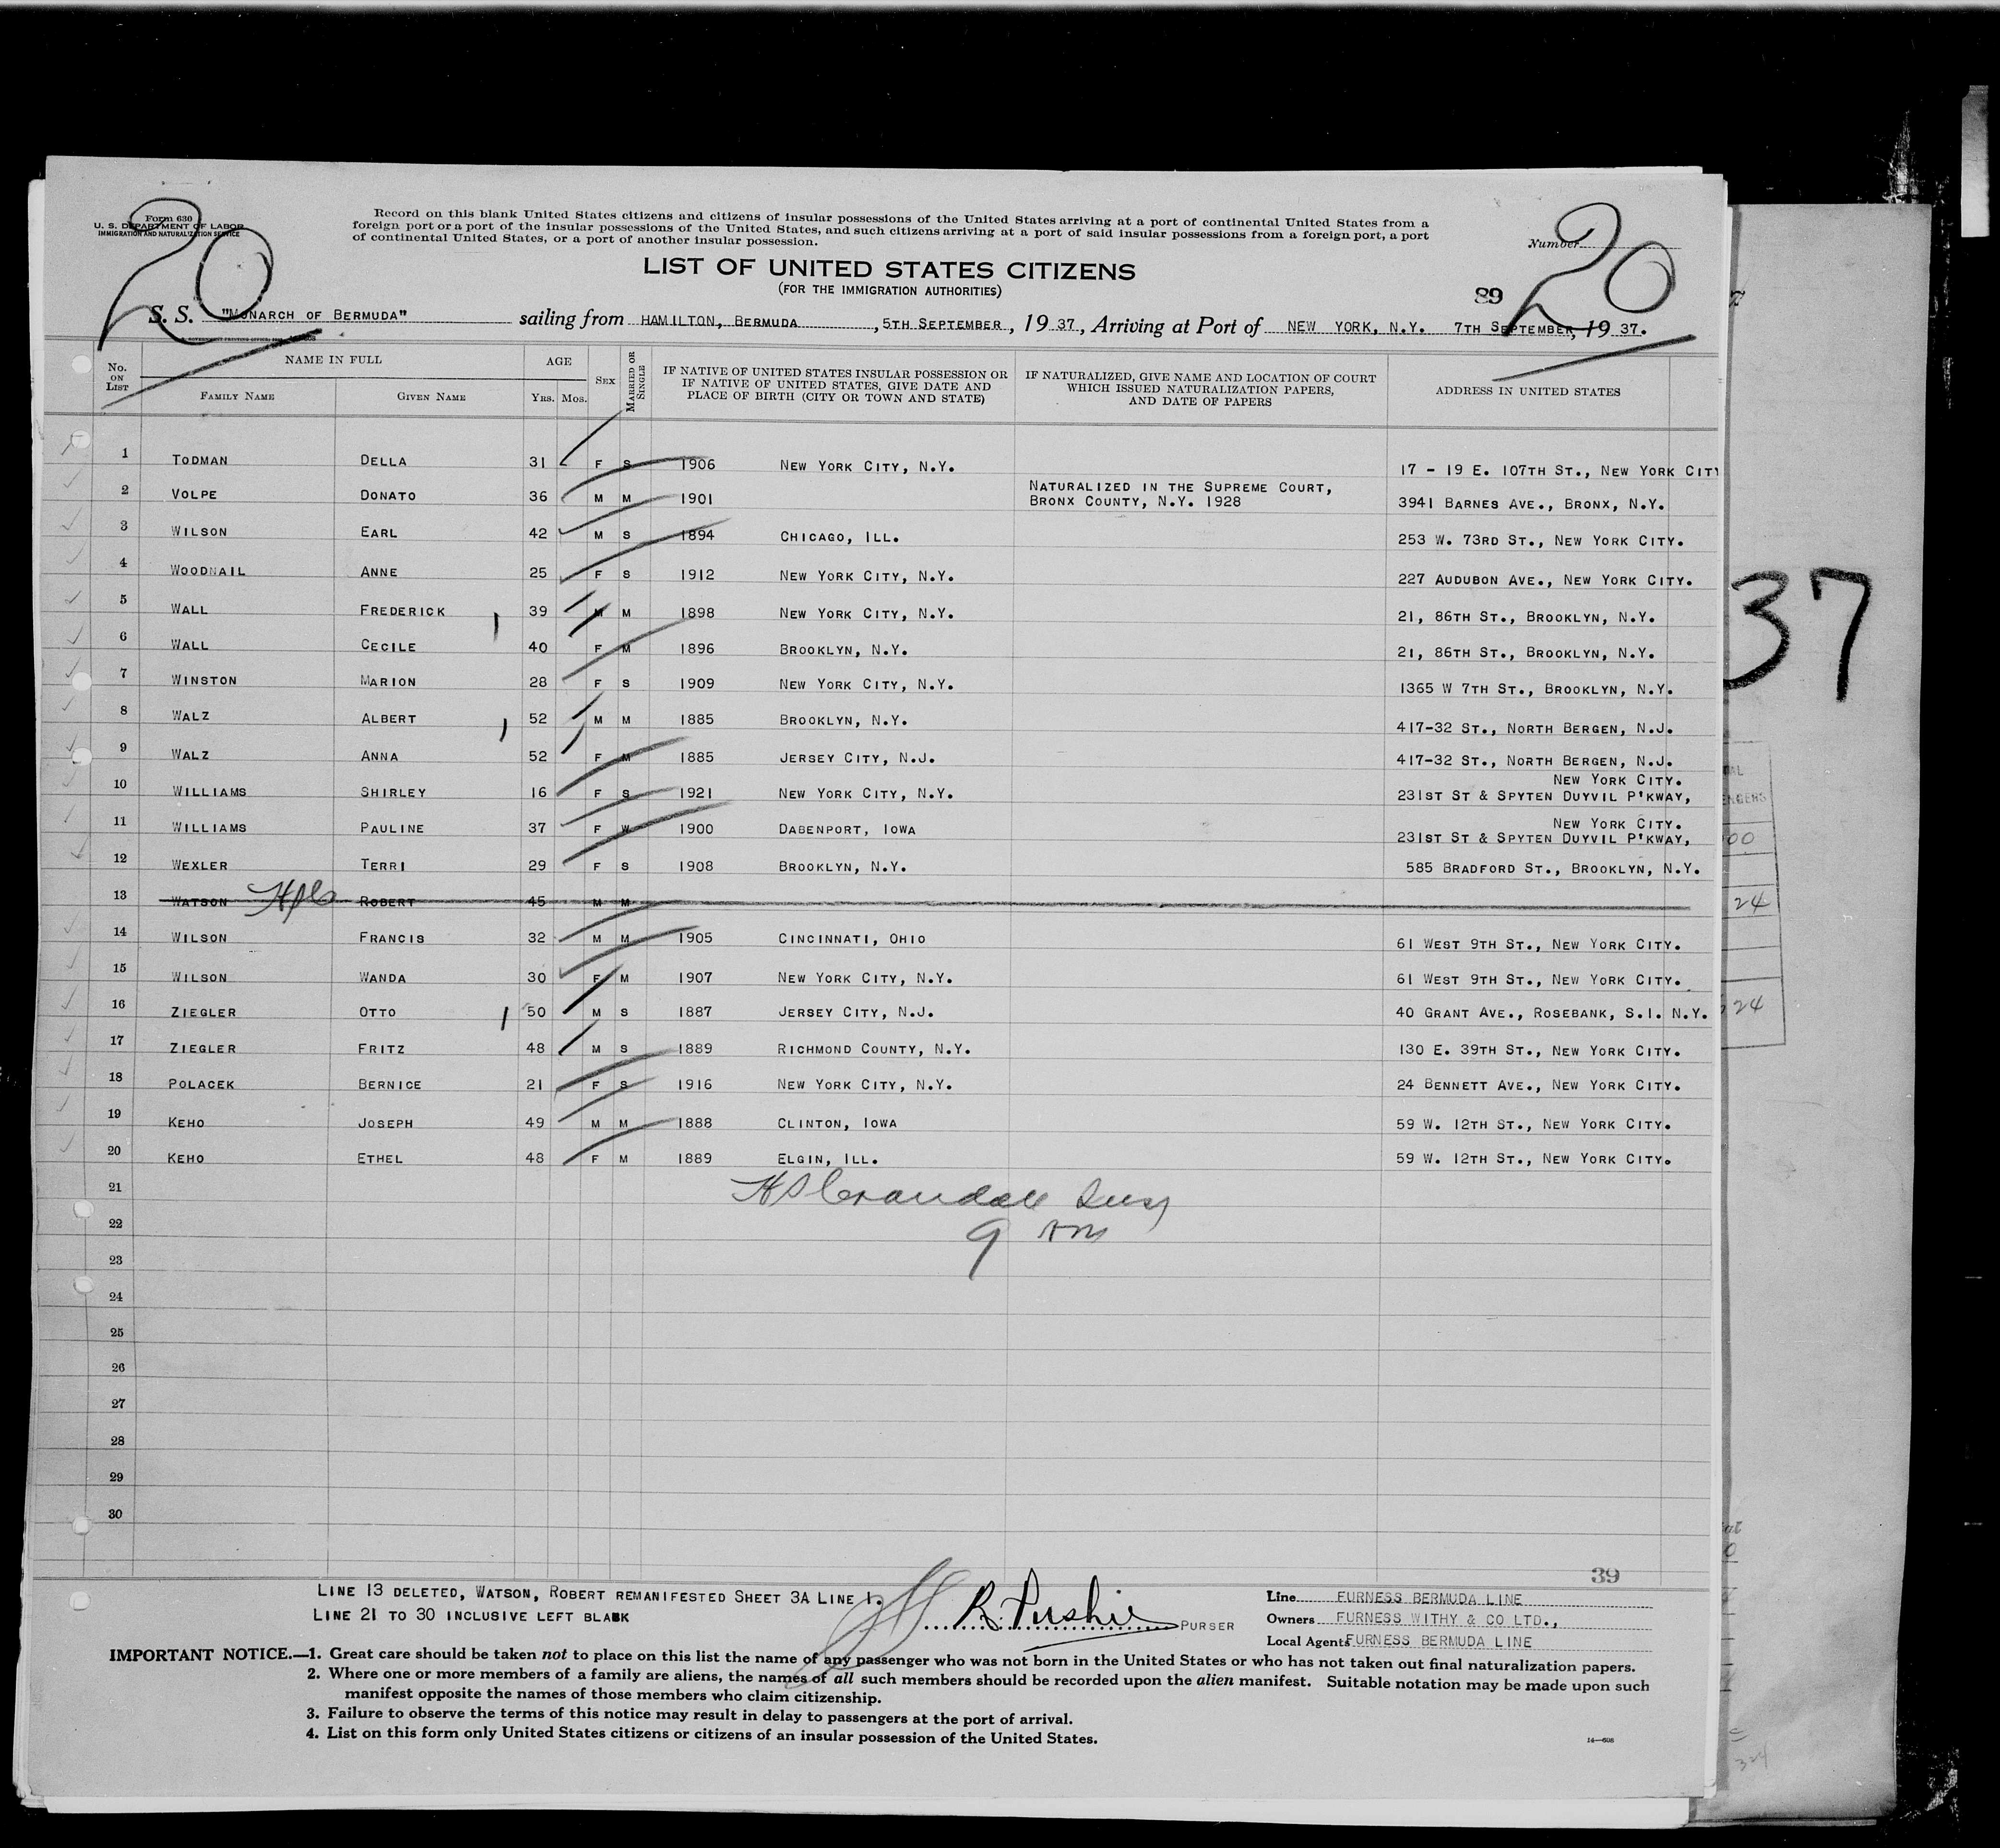 Form 630
U. S. DEPARTMENT OF LABOR
IMMIGRATION AND NATURALIZATION SERVICE
20
Record on this blank United States citizens and citizens of insular possessions of the United States arriving at a port of continental United States from a
foreign port or a port of the insular possessions of the United States, and such citizens arriving at a port of said insular possessions from a foreign port, a port
of continental United States, or a port of another insular possession.
Number
20
LIST OF UNITED STATES CITIZENS
(FOR THE IMMIGRATION AUTHORITIES)
89
S. S. "MONARCH OF BERMUDA" sailing from HAMILTON, BERMUDA, 5TH SEPTEMBER, 19 37, Arriving at Port of NEW YORK, N.Y. 7TH SEPTEMBER, 19 37.
No. ON LIST NAME IN FULL FAMILY NAME GIVEN NAME AGE YRS. MOS. SEX MARRIED OR SINGLE IF NATIVE OF UNITED STATES INSULAR POSSESSION OR IF NATIVE OF UNITED STATES, GIVE DATE AND PLACE OF BIRTH (CITY OR TOWN AND STATE) IF NATURALIZED, GIVE NAME AND LOCATION OF COURT WHICH ISSUED NATURALIZATION PAPERS, AND DATE OF PAPERS ADDRESS IN UNITED STATES
1 TODMAN DELLA 31 F S 1906 NEW YORK CITY, N.Y. 17 - 19 E. 107TH ST., NEW YORK CITY
2 VOLPE DONATO 36 M M 1901 NATURALIZED IN THE SUPREME COURT, BRONX COUNTY, N.Y. 1928 3941 BARNES AVE., BRONX, N.Y.
3 WILSON EARL 42 M S 1894 CHICAGO, ILL. 253 W. 73RD ST., NEW YORK CITY.
4 WOODNAIL ANNE 25 F S 1912 NEW YORK CITY, N.Y. 227 AUDUBON AVE., NEW YORK CITY.
5 WALL FREDERICK 39 M M 1898 NEW YORK CITY, N.Y. 21, 86TH ST., BROOKLYN, N.Y.
6 WALL CECILE 40 F M 1896 BROOKLYN, N.Y. 21, 86TH ST., BROOKLYN, N.Y.
7 WINSTON MARION 28 F S 1909 NEW YORK CITY, N.Y. 1365 W 7TH ST., BROOKLYN, N.Y.
8 WALZ ALBERT 52 M M 1885 BROOKLYN, N.Y. 417-32 ST., NORTH BERGEN, N.J.
9 WALZ ANNA 52 F M 1885 JERSEY CITY, N.J. 417-32 ST., NORTH BERGEN, N.J.
10 WILLIAMS SHIRLEY 16 F S 1921 NEW YORK CITY, N.Y. NEW YORK CITY. 231ST ST & SPYTEN DUYVIL P'KWAY,
11 WILLIAMS PAULINE 37 F W 1900 DABENPORT, IOWA NEW YORK CITY. 231ST ST & SPYTEN DUYVIL P'KWAY,
12 WEXLER TERRI 29 F S 1908 BROOKLYN, N.Y. 585 BRADFORD ST., BROOKLYN, N.Y.
13 WATSON ROBERT 45 M M
14 WILSON FRANCIS 32 M M 1905 CINCINNATI, OHIO 61 WEST 9TH ST., NEW YORK CITY.
15 WILSON WANDA 30 F M 1907 NEW YORK CITY, N.Y. 61 WEST 9TH ST., NEW YORK CITY.
16 ZIEGLER OTTO 50 M S 1887 JERSEY CITY, N.J. 40 GRANT AVE., ROSEBANK, S.I. N.Y.
17 ZIEGLER FRITZ 48 M S 1889 RICHMOND COUNTY, N.Y. 130 E. 39TH ST., NEW YORK CITY.
18 POLACEK BERNICE 21 F S 1916 NEW YORK CITY, N.Y. 24 BENNETT AVE., NEW YORK CITY.
19 KEHO JOSEPH 49 M M 1888 CLINTON, IOWA 59 W. 12TH ST., NEW YORK CITY.
20 KEHO ETHEL 48 F M 1889 ELGIN, ILL. 59 W. 12TH ST., NEW YORK CITY.
21 H S Crandall Insp
22 9 AM
23
24
25
26
27
28
29
30
37
24
24
39
LINE 13 DELETED, WATSON, ROBERT REMANIFESTED SHEET 3A LINE 1.
LINE 21 TO 30 INCLUSIVE LEFT BLANK
PURSER
Line FURNESS BERMUDA LINE
Owners FURNESS WITHY & CO LTD.,
Local Agents FURNESS BERMUDA LINE
IMPORTANT NOTICE.—1. Great care should be taken not to place on this list the name of any passenger who was not born in the United States or who has not taken out final naturalization papers.
2. Where one or more members of a family are aliens, the names of all such members should be recorded upon the alien manifest. Suitable notation may be made upon such
manifest opposite the names of those members who claim citizenship.
3. Failure to observe the terms of this notice may result in delay to passengers at the port of arrival.
4. List on this form only United States citizens or citizens of an insular possession of the United States.
14—608